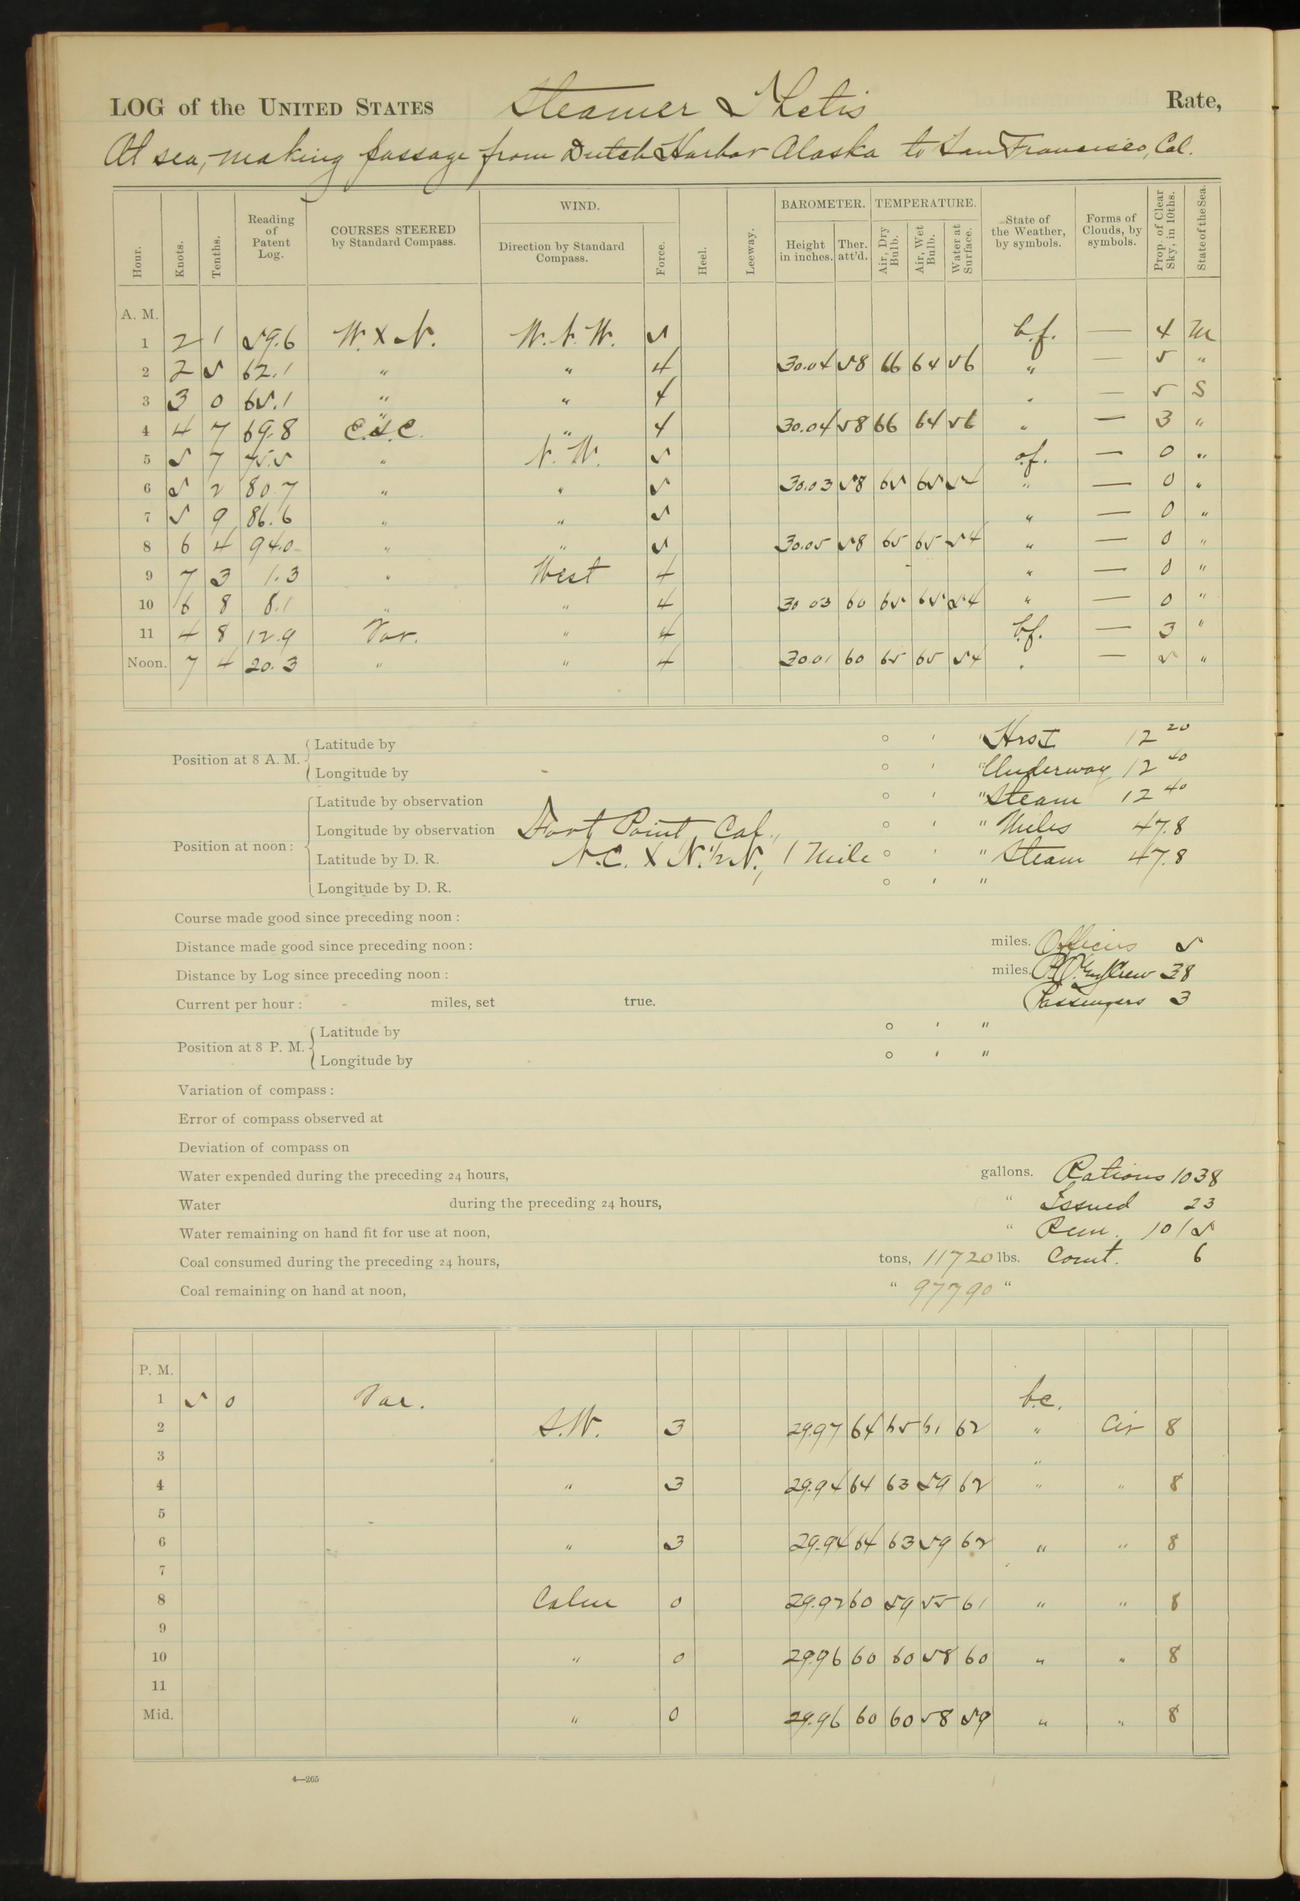 LOG of the UNITED STATES Steamer Thetis Rate,
At sea, making passage from Dutch Harbor Alaska to San Francisco, Cal.
Hour. Knots. Tenths. Reading of Patent Log. COURSES STEERED by Standard Compass. WIND. Direction by Standard Compass. Force. Heel. Leeway. BAROMETER. Height in inches. Ther. att'd. TEMPERATURE. Air, Dry Bulb. Air, Wet Bulb. Water at Surface. State of the Weather, by symbols. Forms of Clouds, by symbols. Prop. of Clear Sky, in 10ths. State of the Sea.
A. M.
1 2 1 59.6 W. X N. W. N. W. 5 b.f. — 4 M
2 2 5 62.1 " " 4 30.04 58 66 64 56 " — 5 "
3 3 0 65.1 " " 4 " — 5 S
4 4 7 69.8 E.S.E. " 4 30.04 58 66 64 56 " — 3 "
5 5 7 75.5 " N. W. 5 o.f. — 0 "
6 5 2 80.7 " " 5 30.03 58 65 65 54 " — 0 "
7 5 9 86.6 " " 5 " — 0 "
8 6 4 94.0 " " 5 30.05 58 65 65 54 " — 0 "
9 7 3 1.3 " West 4 " — 0 "
10 6 8 8.1 " " 4 30 03 60 65 65 54 " — 0 "
11 4 8 12.9 Var. " 4 b.f. — 3 "
Noon. 7 4 20.3 " " 4 30.01 60 65 65 54 " — 5 "
Position at 8 A. M. Latitude by ° ' " Hrs I 12 20
Longitude by ° ' " Underway 12 40
Position at noon: Latitude by observation ° ' " Steam 12 40
Longitude by observation Fort Point, Cal., ° ' " Miles 47.8
Latitude by D. R. N.E. X N.½N., 1 Mile ° ' " Steam 47.8
Longitude by D. R. ° ' "
Course made good since preceding noon:
Distance made good since preceding noon: miles. Officers 5
Distance by Log since preceding noon: miles. Crew 38
Current per hour: miles, set true. Passengers 3
Position at 8 P. M. Latitude by ° ' "
Longitude by ° ' "
Variation of compass:
Error of compass observed at
Deviation of compass on
Water expended during the preceding 24 hours, gallons. Rations 1038
Water during the preceding 24 hours, " Issued 23
Water remaining on hand fit for use at noon, " Rem. 1015
Coal consumed during the preceding 24 hours, tons, 11720 lbs. Comt. 6
Coal remaining on hand at noon, " 97790 "
P. M.
1 5 0 Var. b.c.
2 S.W. 3 29.97 64 65 61 62 " Cir 8
3 "
4 " 3 29.94 64 63 59 62 " " 8
5
6 " 3 29.94 64 63 59 62 " " 8
7
8 Calm 0 29.92 60 59 55 61 " " 8
9
10 " 0 29.96 60 60 58 60 " " 8
11
Mid. " 0 29.96 60 60 58 59 " " 8
4—265